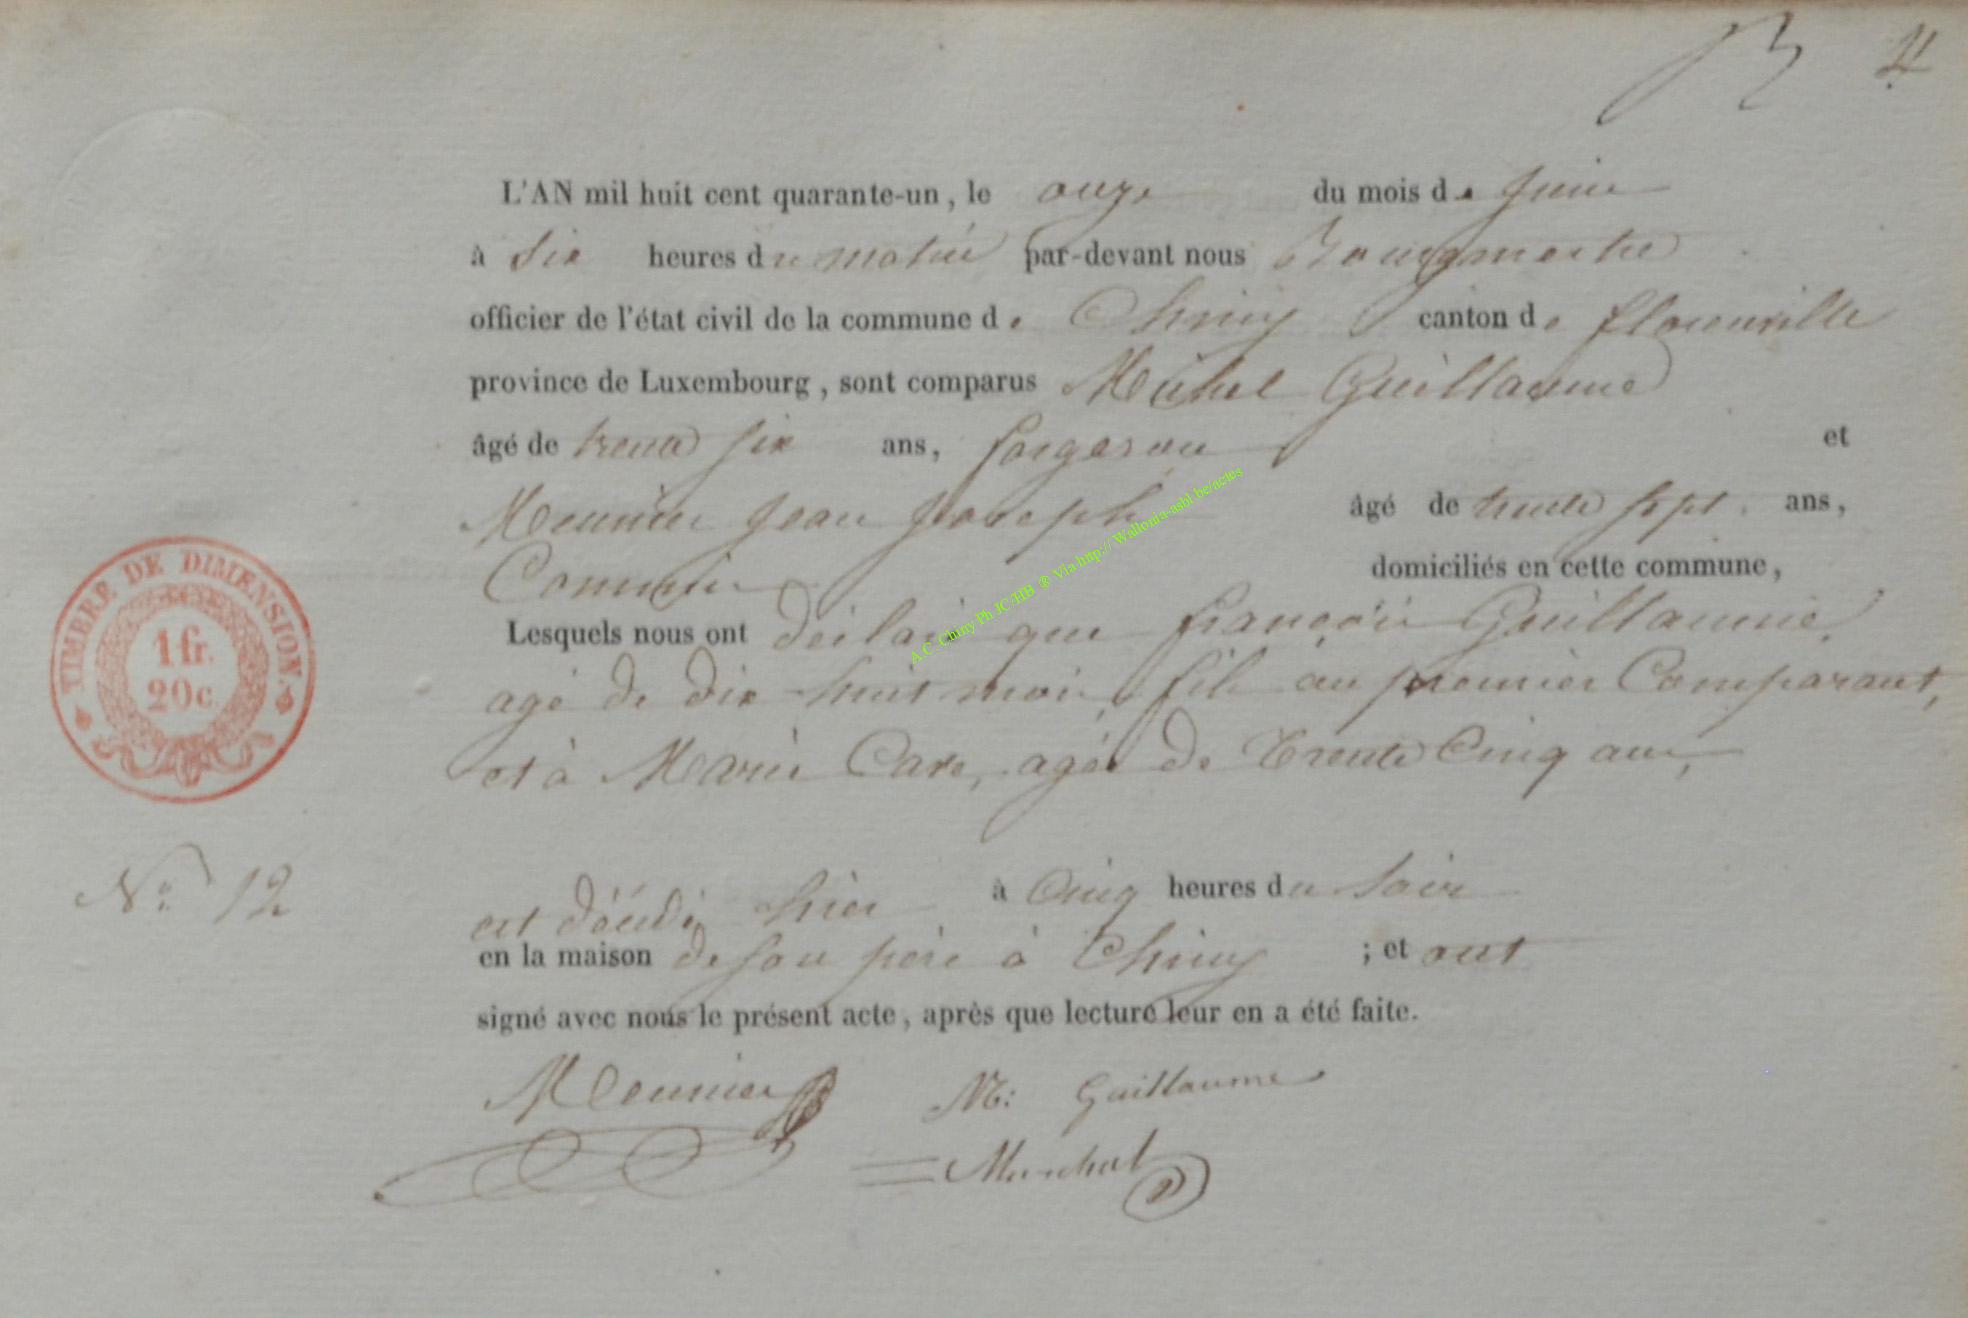 4
L'AN mil huit cent quarante-un, le onze du mois de Juin
à six heures du matin par-devant nous Bourgmestre
officier de l'état civil de la commune de Chiny canton de florenville
province de Luxembourg, sont comparus Michel Guillaume
âgé de trente six ans, forgeron et
Meunier Jean Joseph âgé de trente sept ans,
Commis domiciliés en cette commune,
Lesquels nous ont déclaré que françois Guillaume,
agé de dix huit mois, fils au premier Comparant,
et à Marie Care, agée de Trente Cinq ans,
est décédé hier à Cinq heures du soir
en la maison de son père à Chiny ; et ont
signé avec nous le présent acte, après que lecture leur en a été faite.
Meunier M: Guillaume
Marchal
TIMBRE DE DIMENSION.
1 fr.
20 c.
No. 12
A.C. Chiny Ph JC-HB ® Via http:// Wallonia-asbl.be/actes